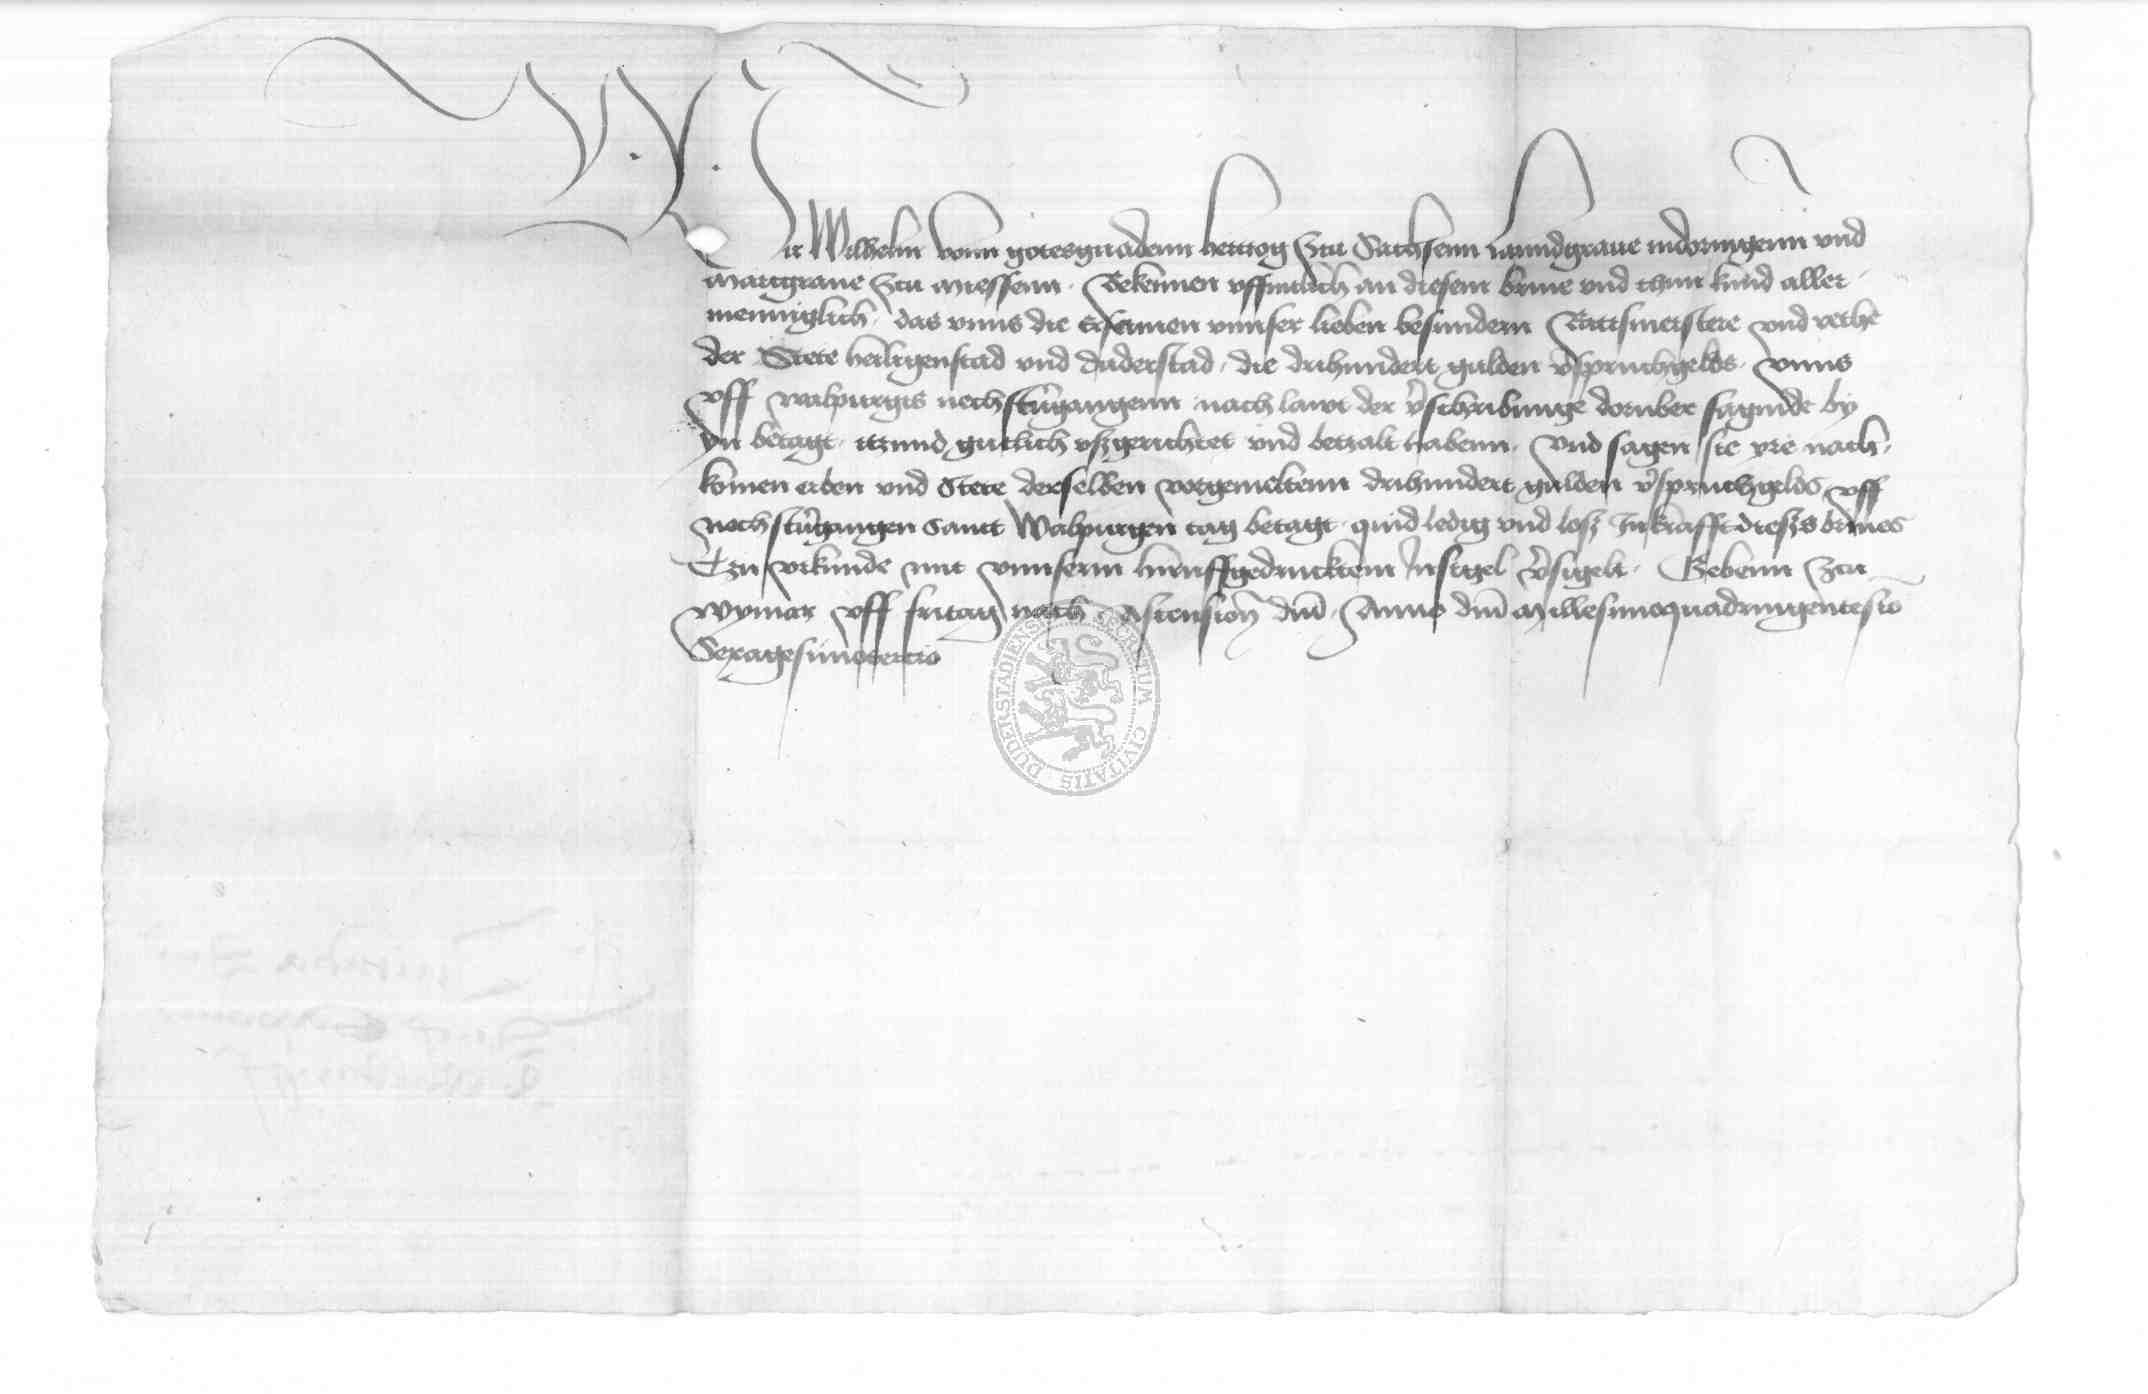 Wir Wilhelm vonn gotesgnadenn hertzog Zcu Sachsenn Lanndgraue indoringenn vnd
Marcgraue Zcu Miessenn . Bekennen vffintlich an diesem briue vnd thun kund aller
menniglich . das vnns die Ersamen vnnser lieben besundern Rattsmeistere vnd rethe
der Stete heiligenstad vnd duderstad . die drihundert gulden v̉spruchgelds . vnns
vff walpurgis nechstũgangenn nach lawt der v̉schribunge doruber sagnde by
yn betagt . itzund gutlich vßgerichtet vnd betzalt habenn . vnd sagen sie yre nach
komen erben vnd Stete derselben vorgemeltenn drihundert gulden v̉spruchgelds vff
nechstũgangen Sanct Walpurgen tag betagt . quid ledig vnd losz Inkrafft dieszs briues
Tzu vrkunde mit vnnserm hirnffgedrucktem Insigel v̉sigelt . Gebenn Zcu
wymar vff fritag nach Ascension dnĩ . Anno dnĩ Millesimoquadringentesiō
Sexagesimotercio
SECRETUM CIVITATIS DUDERSTADIENSIS